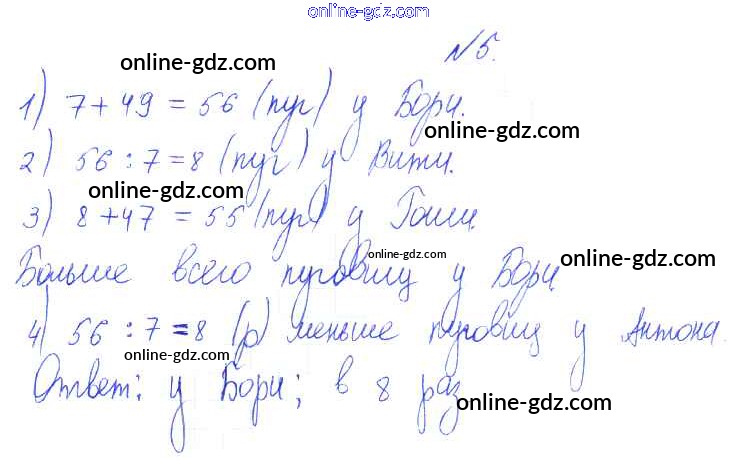 online-gdz.com
№5.
online-gdz.com
1) 7+49 = 56 (пуг) у Бори.
online-gdz.com
2) 56 : 7 = 8 (пуг) у Вити.
online-gdz.com
3) 8+47 = 55 (пуг) у Гоши.
online-gdz.com
Больше всего пуговиц у Бори
online-gdz.com
4) 56 : 7 = 8 (р) меньше пуговиц у Антона.
online-gdz.com
Ответ: у Бори; в 8 раз
online-gdz.com